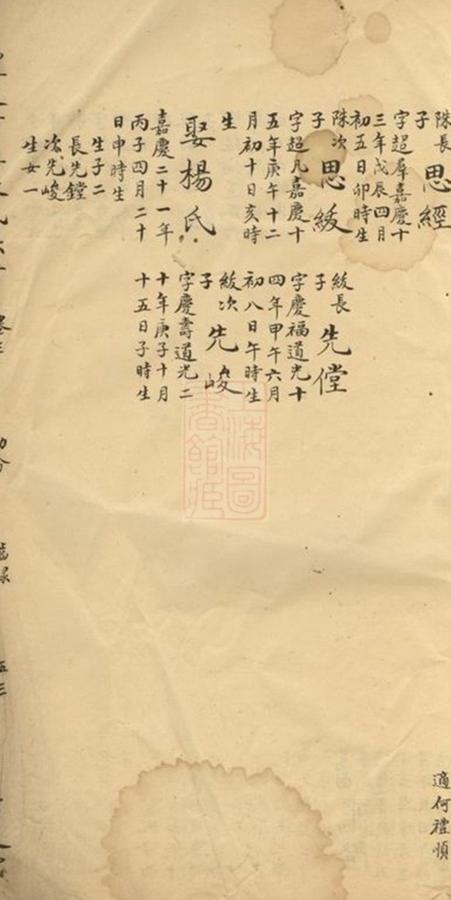 陎長子 思經
字超羣嘉慶十
三年戊辰四月
初五日卯時生
陎次子 思紱
字超凡嘉慶十
五年庚午十二
月初十日亥時
生
娶楊氏
嘉慶二十一年
丙子四月二十
日申時生
生子二
長先鏜
次先峻
生女一
紱長子 先鏜
字慶福道光十
四年甲午六月
初八日午時生
紱次子 先峻
字慶壽道光二
十年庚子十月
十五日子時生
適何禮慎